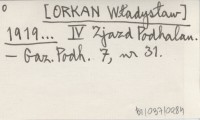 0
[ORKAN Władysław]
1919... IV Zjazd Podhalan.
— Gaz. Podh. 7, nr 31.